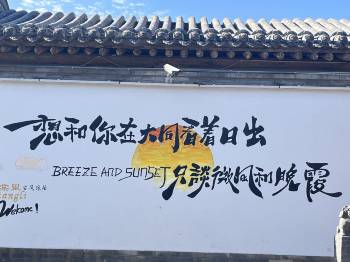 想和你在大同看着日出
BREEZE AND SUNSET
只談微风和晚霞
Welcome!